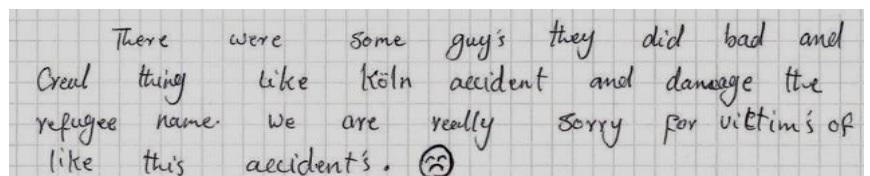 There were some guy's they did bad and
Creul thing like Köln accident and damage the
refugee name. We are really sorry for viktim's of
like this accident's. ☹